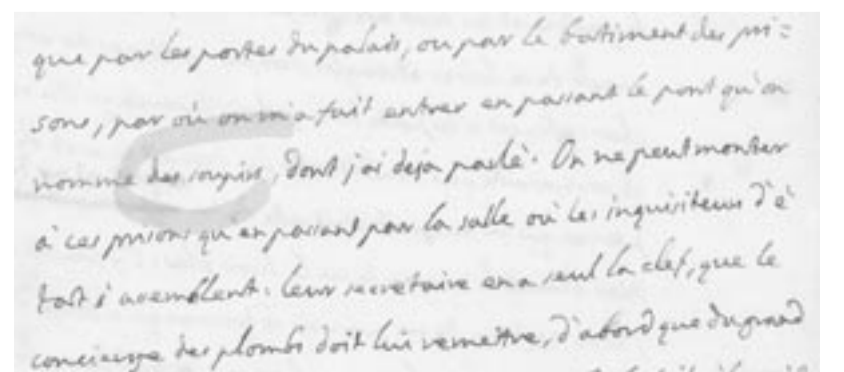 que par les portes du palais, ou par le batiment des pri=
sons, par où on m'a fait entrer en passant le pont qu'on
nomme des soupirs, dont j'ai deja parlè. On ne peut monter
à ces prisons qu'en passant par la salle où les inquisiteurs d'é
tat s'assemblent: leur secretaire en a seul la clef, que le
concierge des plombs doit lui remettre, d'abord que du grand